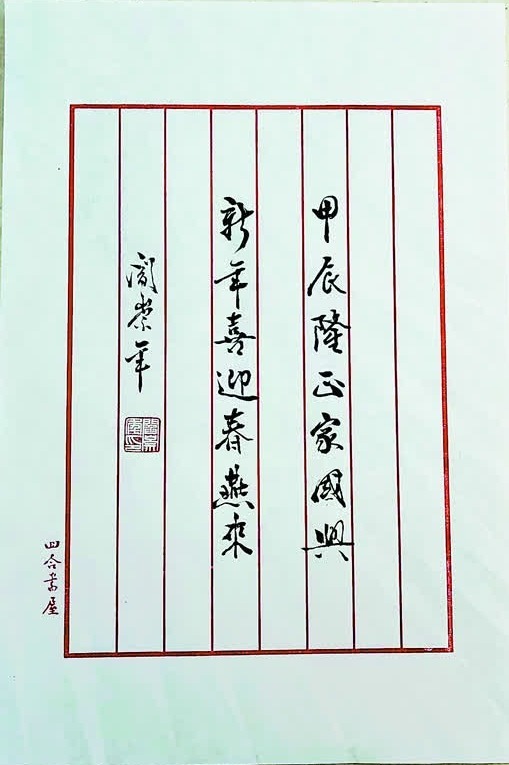 甲辰隆正家國興
新年喜迎春燕來
閻崇年
四合書屋